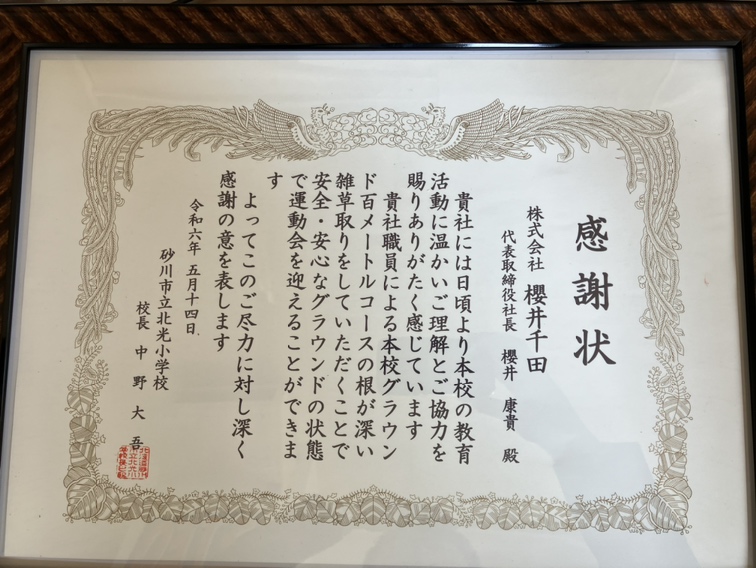 感謝状
株式会社 櫻井千田
代表取締役社長 櫻井 康貴 殿
貴社には日頃より本校の教育
活動に温かいご理解とご協力を
賜りありがたく感じています
貴社職員による本校グラウン
ド百メートルコースの根が深い
雑草取りをしていただくことで
安全・安心なグラウンドの状態
で運動会を迎えることができま
す
よってこのご尽力に対し深く
感謝の意を表します
令和六年 五月十四日
砂川市立北光小学校
校長 中野大吾